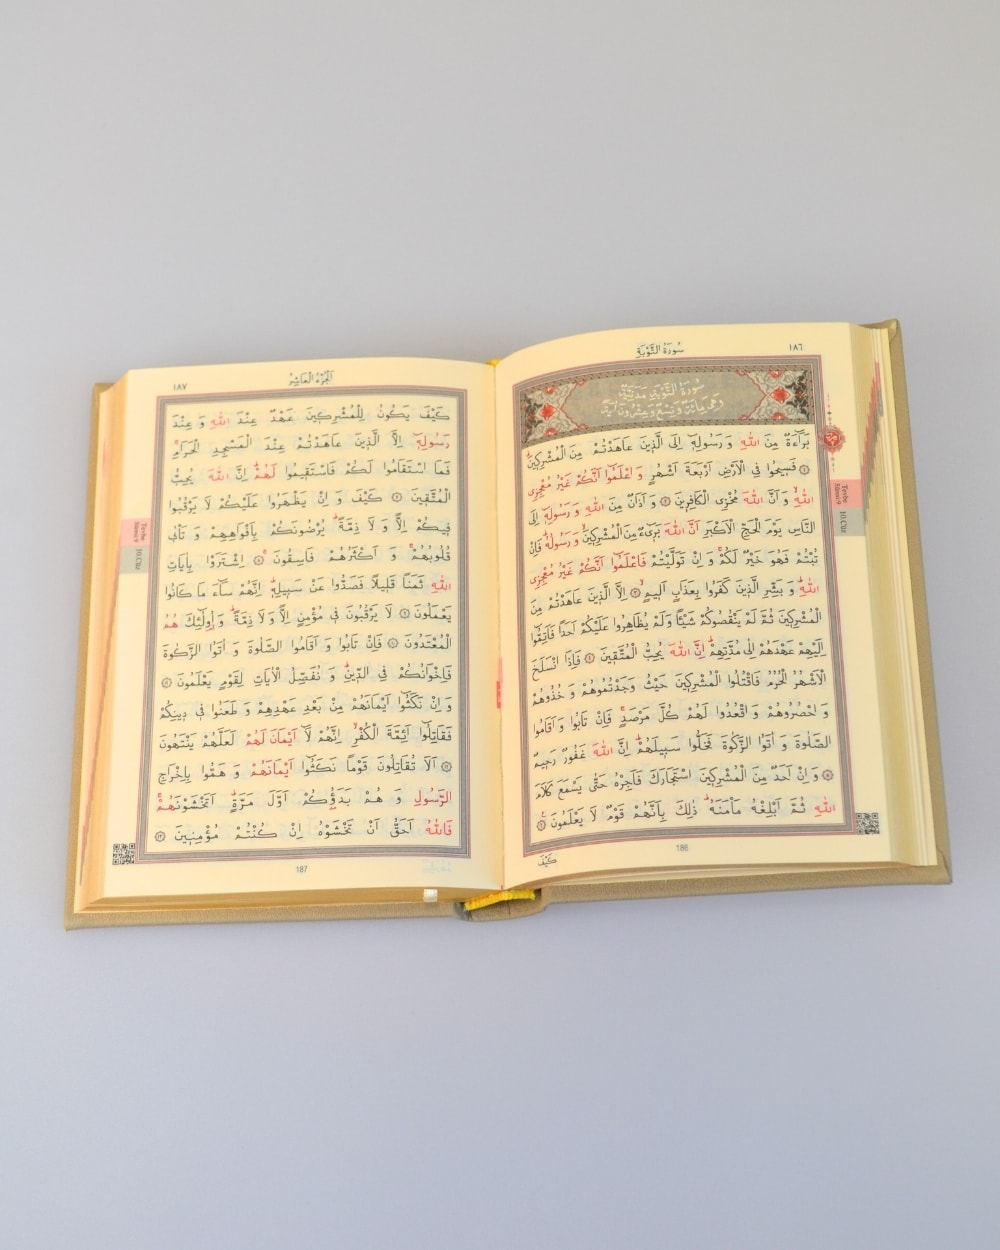 سُورَةُ التَّوْبَةِ
١٨٦
سُورَةُ التَّوْبَةِ مَدَنِيَّةٌ
وَهِىَ مِائَةٌ وَتِسْعٌ وَعِشْرُونَ اٰيَةً
بَرَٓاءَةٌ مِنَ اللّٰهِ وَرَسُولِهِٓ اِلَى الَّذٖينَ عَاهَدْتُمْ مِنَ الْمُشْرِكٖينَؕ
﴿١﴾ فَسٖيحُوا فِى الْاَرْضِ اَرْبَعَةَ اَشْهُرٍ وَاعْلَمُٓوا اَنَّكُمْ غَيْرُ مُعْجِزِى
اللّٰهِۙ وَاَنَّ اللّٰهَ مُخْزِى الْكَافِرٖينَ ﴿٢﴾ وَاَذَانٌ مِنَ اللّٰهِ وَرَسُولِهِٓ اِلَى
النَّاسِ يَوْمَ الْحَجِّ الْاَكْبَرِ اَنَّ اللّٰهَ بَرٖٓىءٌ مِنَ الْمُشْرِكٖينَۙ وَرَسُولُهُؕ فَاِنْ
تُبْتُمْ فَهُوَ خَيْرٌ لَكُمْۚ وَاِنْ تَوَلَّيْتُمْ فَاعْلَمُٓوا اَنَّكُمْ غَيْرُ مُعْجِزِى
اللّٰهِؕ وَبَشِّرِ الَّذٖينَ كَفَرُوا بِعَذَابٍ اَلٖيمٍۙ ﴿٣﴾ اِلَّا الَّذٖينَ عَاهَدْتُمْ مِنَ
الْمُشْرِكٖينَ ثُمَّ لَمْ يَنْقُصُوكُمْ شَيْـًٔا وَلَمْ يُظَاهِرُوا عَلَيْكُمْ اَحَدًا فَاَتِمُّٓوا
اِلَيْهِمْ عَهْدَهُمْ اِلٰى مُدَّتِهِمْؕ اِنَّ اللّٰهَ يُحِبُّ الْمُتَّقٖينَ ﴿٤﴾ فَاِذَا انْسَلَخَ
الْاَشْهُرُ الْحُرُمُ فَاقْتُلُوا الْمُشْرِكٖينَ حَيْثُ وَجَدْتُمُوهُمْ وَخُذُوهُمْ
وَاحْصُرُوهُمْ وَاقْعُدُوا لَهُمْ كُلَّ مَرْصَدٍۚ فَاِنْ تَابُوا وَاَقَامُوا
الصَّلٰوةَ وَاٰتَوُا الزَّكٰوةَ فَخَلُّوا سَبٖيلَهُمْؕ اِنَّ اللّٰهَ غَفُورٌ رَحٖيمٌ
﴿٥﴾ وَاِنْ اَحَدٌ مِنَ الْمُشْرِكٖينَ اسْتَجَارَكَ فَاَجِرْهُ حَتّٰى يَسْمَعَ كَلَامَ
اللّٰهِ ثُمَّ اَبْلِغْهُ مَأْمَنَهُؕ ذٰلِكَ بِاَنَّهُمْ قَوْمٌ لَا يَعْلَمُونَ ﴿٦﴾
كَيْفَ
186
Tevbe
Sûresi 9
10.Cüz
اَلْجُزْءُ الْعَاشِرُ
١٨٧
كَيْفَ يَكُونُ لِلْمُشْرِكٖينَ عَهْدٌ عِنْدَ اللّٰهِ وَعِنْدَ
رَسُولِهِٓ اِلَّا الَّذٖينَ عَاهَدْتُمْ عِنْدَ الْمَسْجِدِ الْحَرَامِۚ
فَمَا اسْتَقَامُوا لَكُمْ فَاسْتَقٖيمُوا لَهُمْؕ اِنَّ اللّٰهَ يُحِبُّ
الْمُتَّقٖينَ ﴿٧﴾ كَيْفَ وَاِنْ يَظْهَرُوا عَلَيْكُمْ لَا يَرْقُبُوا
فٖيكُمْ اِلًّا وَلَا ذِمَّةًؕ يُرْضُونَكُمْ بِاَفْوَاهِهِمْ وَتَأْبٰى
قُلُوبُهُمْۚ وَاَكْثَرُهُمْ فَاسِقُونَۚ ﴿٨﴾ اِشْتَرَوْا بِاٰيَاتِ
اللّٰهِ ثَمَنًا قَلٖيلًا فَصَدُّوا عَنْ سَبٖيلِهٖؕ اِنَّهُمْ سَٓاءَ مَا كَانُوا
يَعْمَلُونَ ﴿٩﴾ لَا يَرْقُبُونَ فٖى مُؤْمِنٍ اِلًّا وَلَا ذِمَّةًؕ وَاُولٰٓئِكَ هُمُ
الْمُعْتَدُونَ ﴿١٠﴾ فَاِنْ تَابُوا وَاَقَامُوا الصَّلٰوةَ وَاٰتَوُا الزَّكٰوةَ
فَاِخْوَانُكُمْ فِى الدّٖينِؕ وَنُفَصِّلُ الْاٰيَاتِ لِقَوْمٍ يَعْلَمُونَ ﴿١١﴾
وَاِنْ نَكَثُٓوا اَيْمَانَهُمْ مِنْ بَعْدِ عَهْدِهِمْ وَطَعَنُوا فٖى دٖينِكُمْ
فَقَاتِلُٓوا اَئِمَّةَ الْكُفْرِۙ اِنَّهُمْ لَٓا اَيْمَانَ لَهُمْ لَعَلَّهُمْ يَنْتَهُونَ
﴿١٢﴾ اَلَا تُقَاتِلُونَ قَوْمًا نَكَثُٓوا اَيْمَانَهُمْ وَهَمُّوا بِاِخْرَاجِ
الرَّسُولِ وَهُمْ بَدَؤُكُمْ اَوَّلَ مَرَّةٍؕ اَتَخْشَوْنَهُمْۚ
فَاللّٰهُ اَحَقُّ اَنْ تَخْشَوْهُ اِنْ كُنْتُمْ مُؤْمِنٖينَ ﴿١٣﴾
187
Tevbe
Sûresi 9
10.Cüz